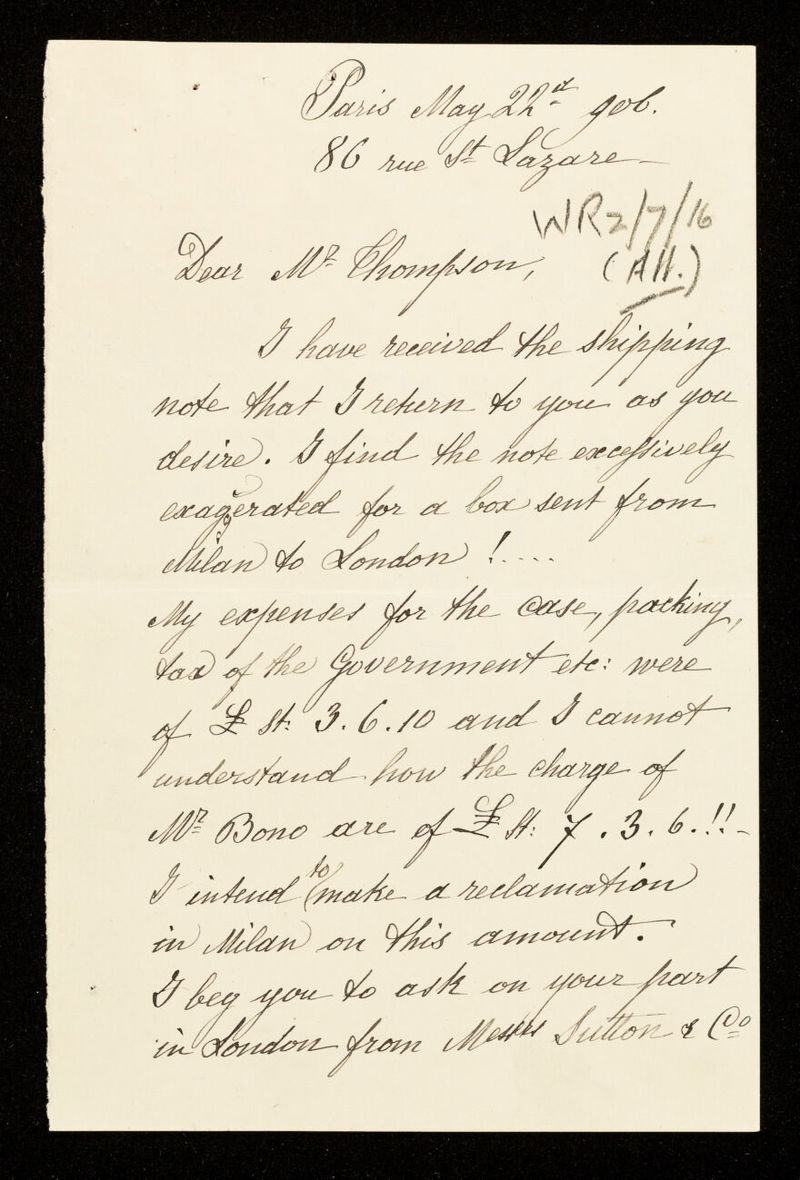 Paris May 22d 906.
86 rue St Lazare -
WR2/7/16
(All.)
Dear Mr Thompson,
I have received the shipping
note that I return to you as you
desire. I find the note excessively
exagerated for a box sent from
Milan to London !.....
My expenses for the case, packing,
tax of the Government etc: were
of £ St: 3.6.10 and I cannot
understand how the charge of
Mr Bono are of £ St: 7.3.6.!! -
I intend to make a reclamation
in Milan on this amount.
I beg you to ask on your part
in London from Messrs Sutton & Co